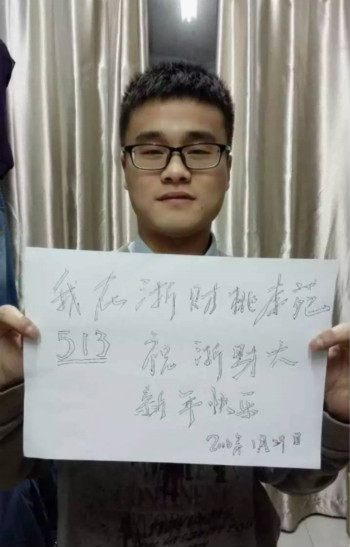 我在浙财桃李苑
513 祝浙财大
新年快乐
1月29日